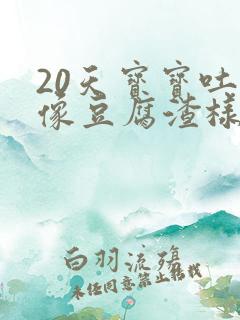 20天宝宝吐
像豆腐渣样
白羽流殇
未经同意禁止转载